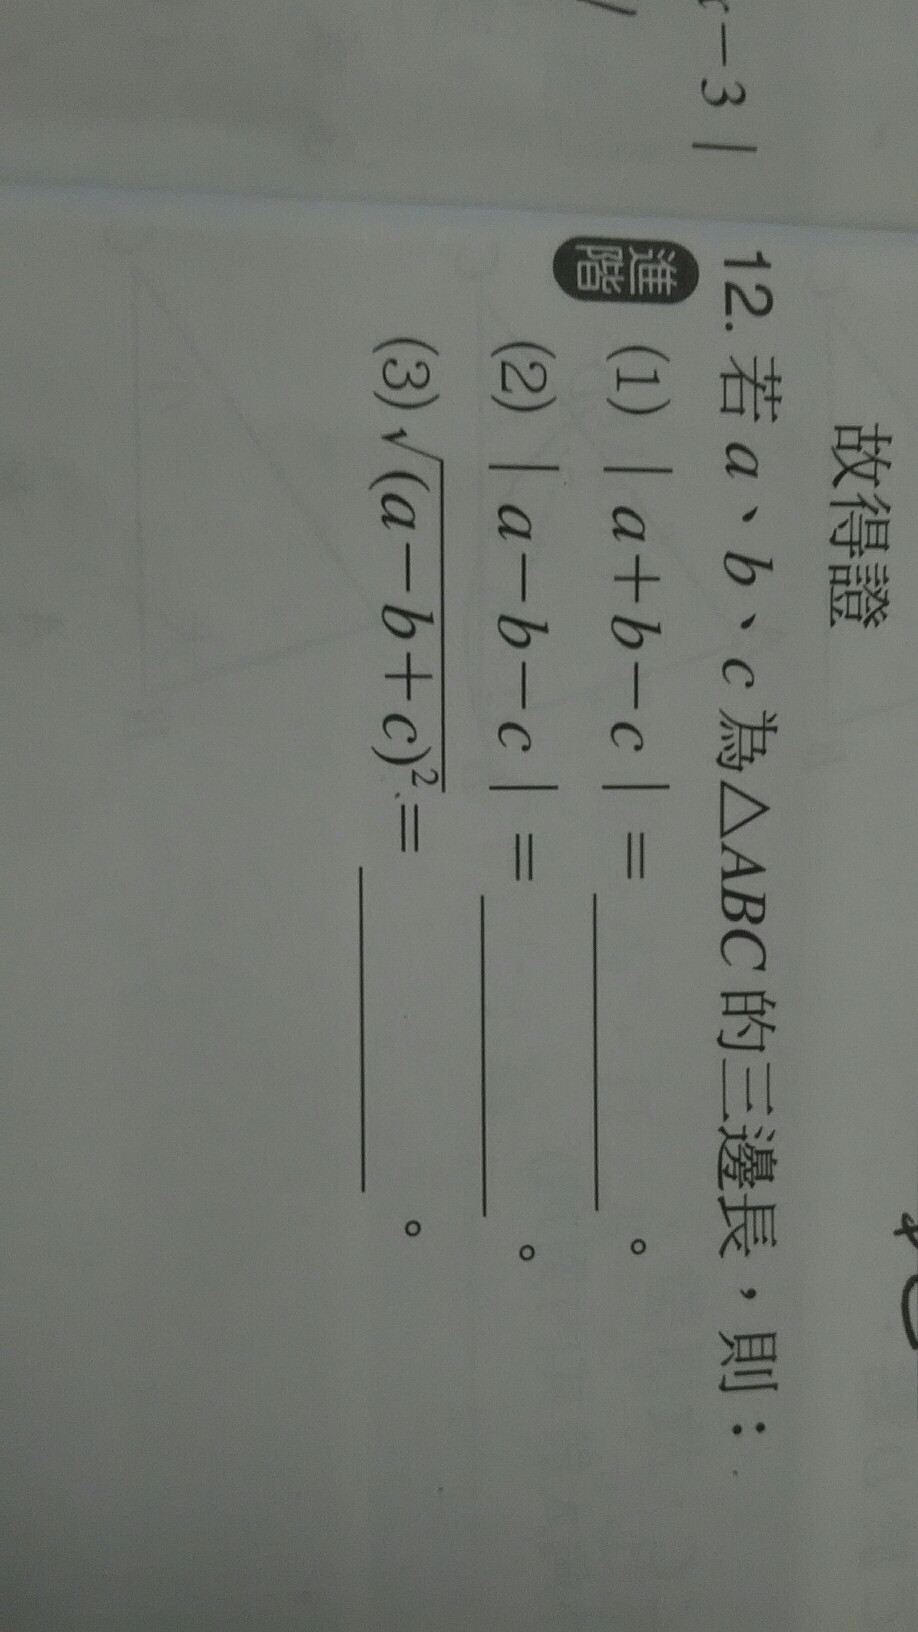 -3|
故得證
12. 若 a、b、c 為△ABC 的三邊長,則:
進階
(1) | a+b-c | = ________。
(2) | a-b-c | = ________。
(3) √(a-b+c)² = ________。